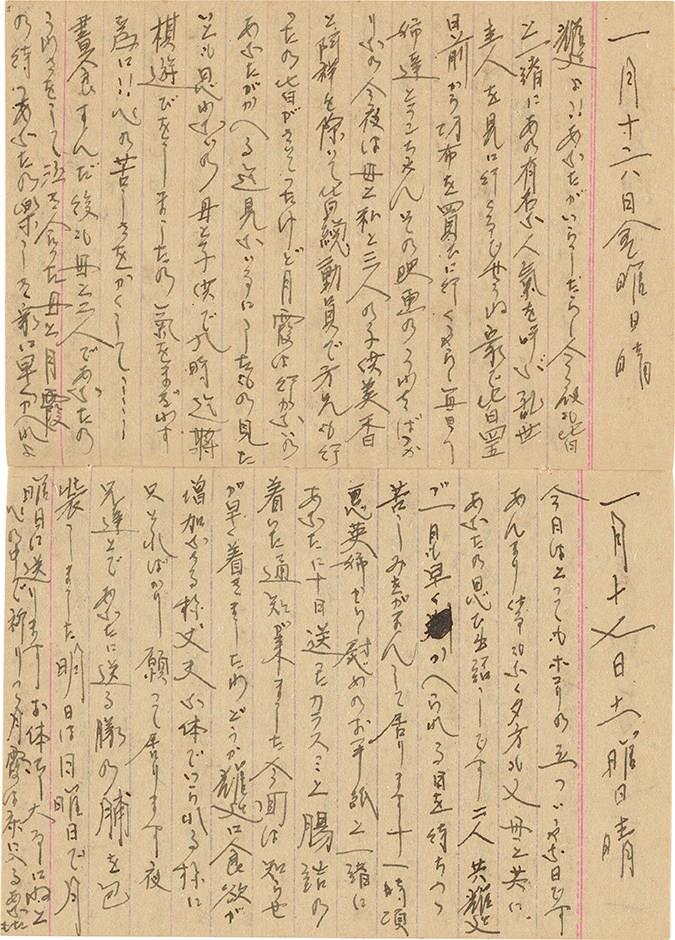 一月十六日金曜日晴
耀廷よ!!あなたがいらしたら今夜も皆
と一緒にあの有名な人氣を呼ぶ乱世
主人を見に行くでせうね 家で皆四五
日前から切布を買ひに行くやら毎日
姉達と
その映画のうわさばっか
りなの今夜は母と私と三人の子供美香
と阿祥を除いて皆總動員で方兄も行
ったの皆がさそったけど月霞は行かないの
あなたがかへる迄見ないことにしたもの見た
いとも思わないの 母と子供で九時迄將
棋遊びをしましたの 氣をまぎわす
為に!!心の苦しさをかくして・・・・・
晝食すんだ後も母と二人であなたの
うわさをして泣き合った母と月霞
の待つあなたの樂しき家に早く
一月十七日土曜日晴
今日はとってもホコリの立ついやな日です
あんまり
夕方も又母と共に
あなたの思ひ出話しです 二人共耀廷
が一日も早く かへられる日を待ちつつ
苦しみをがまんして居ります 十一時頃
惠英姉から慰めのお手紙と一緒に
あなたに十日送ったカラスミと腸詰の
着いた通知が來ました 今回は知らせ
が早く着きましたわ どうか耀廷に食欲が
増加する様 丈夫な体でいられる様に
只そればかり願って居ります 夜
兄達とであなたに送る豚の脯を包
装しました 明日は日曜日で月
曜日に送ります お体を大事にねと
心の中で祈りつつ月霞は床に入る